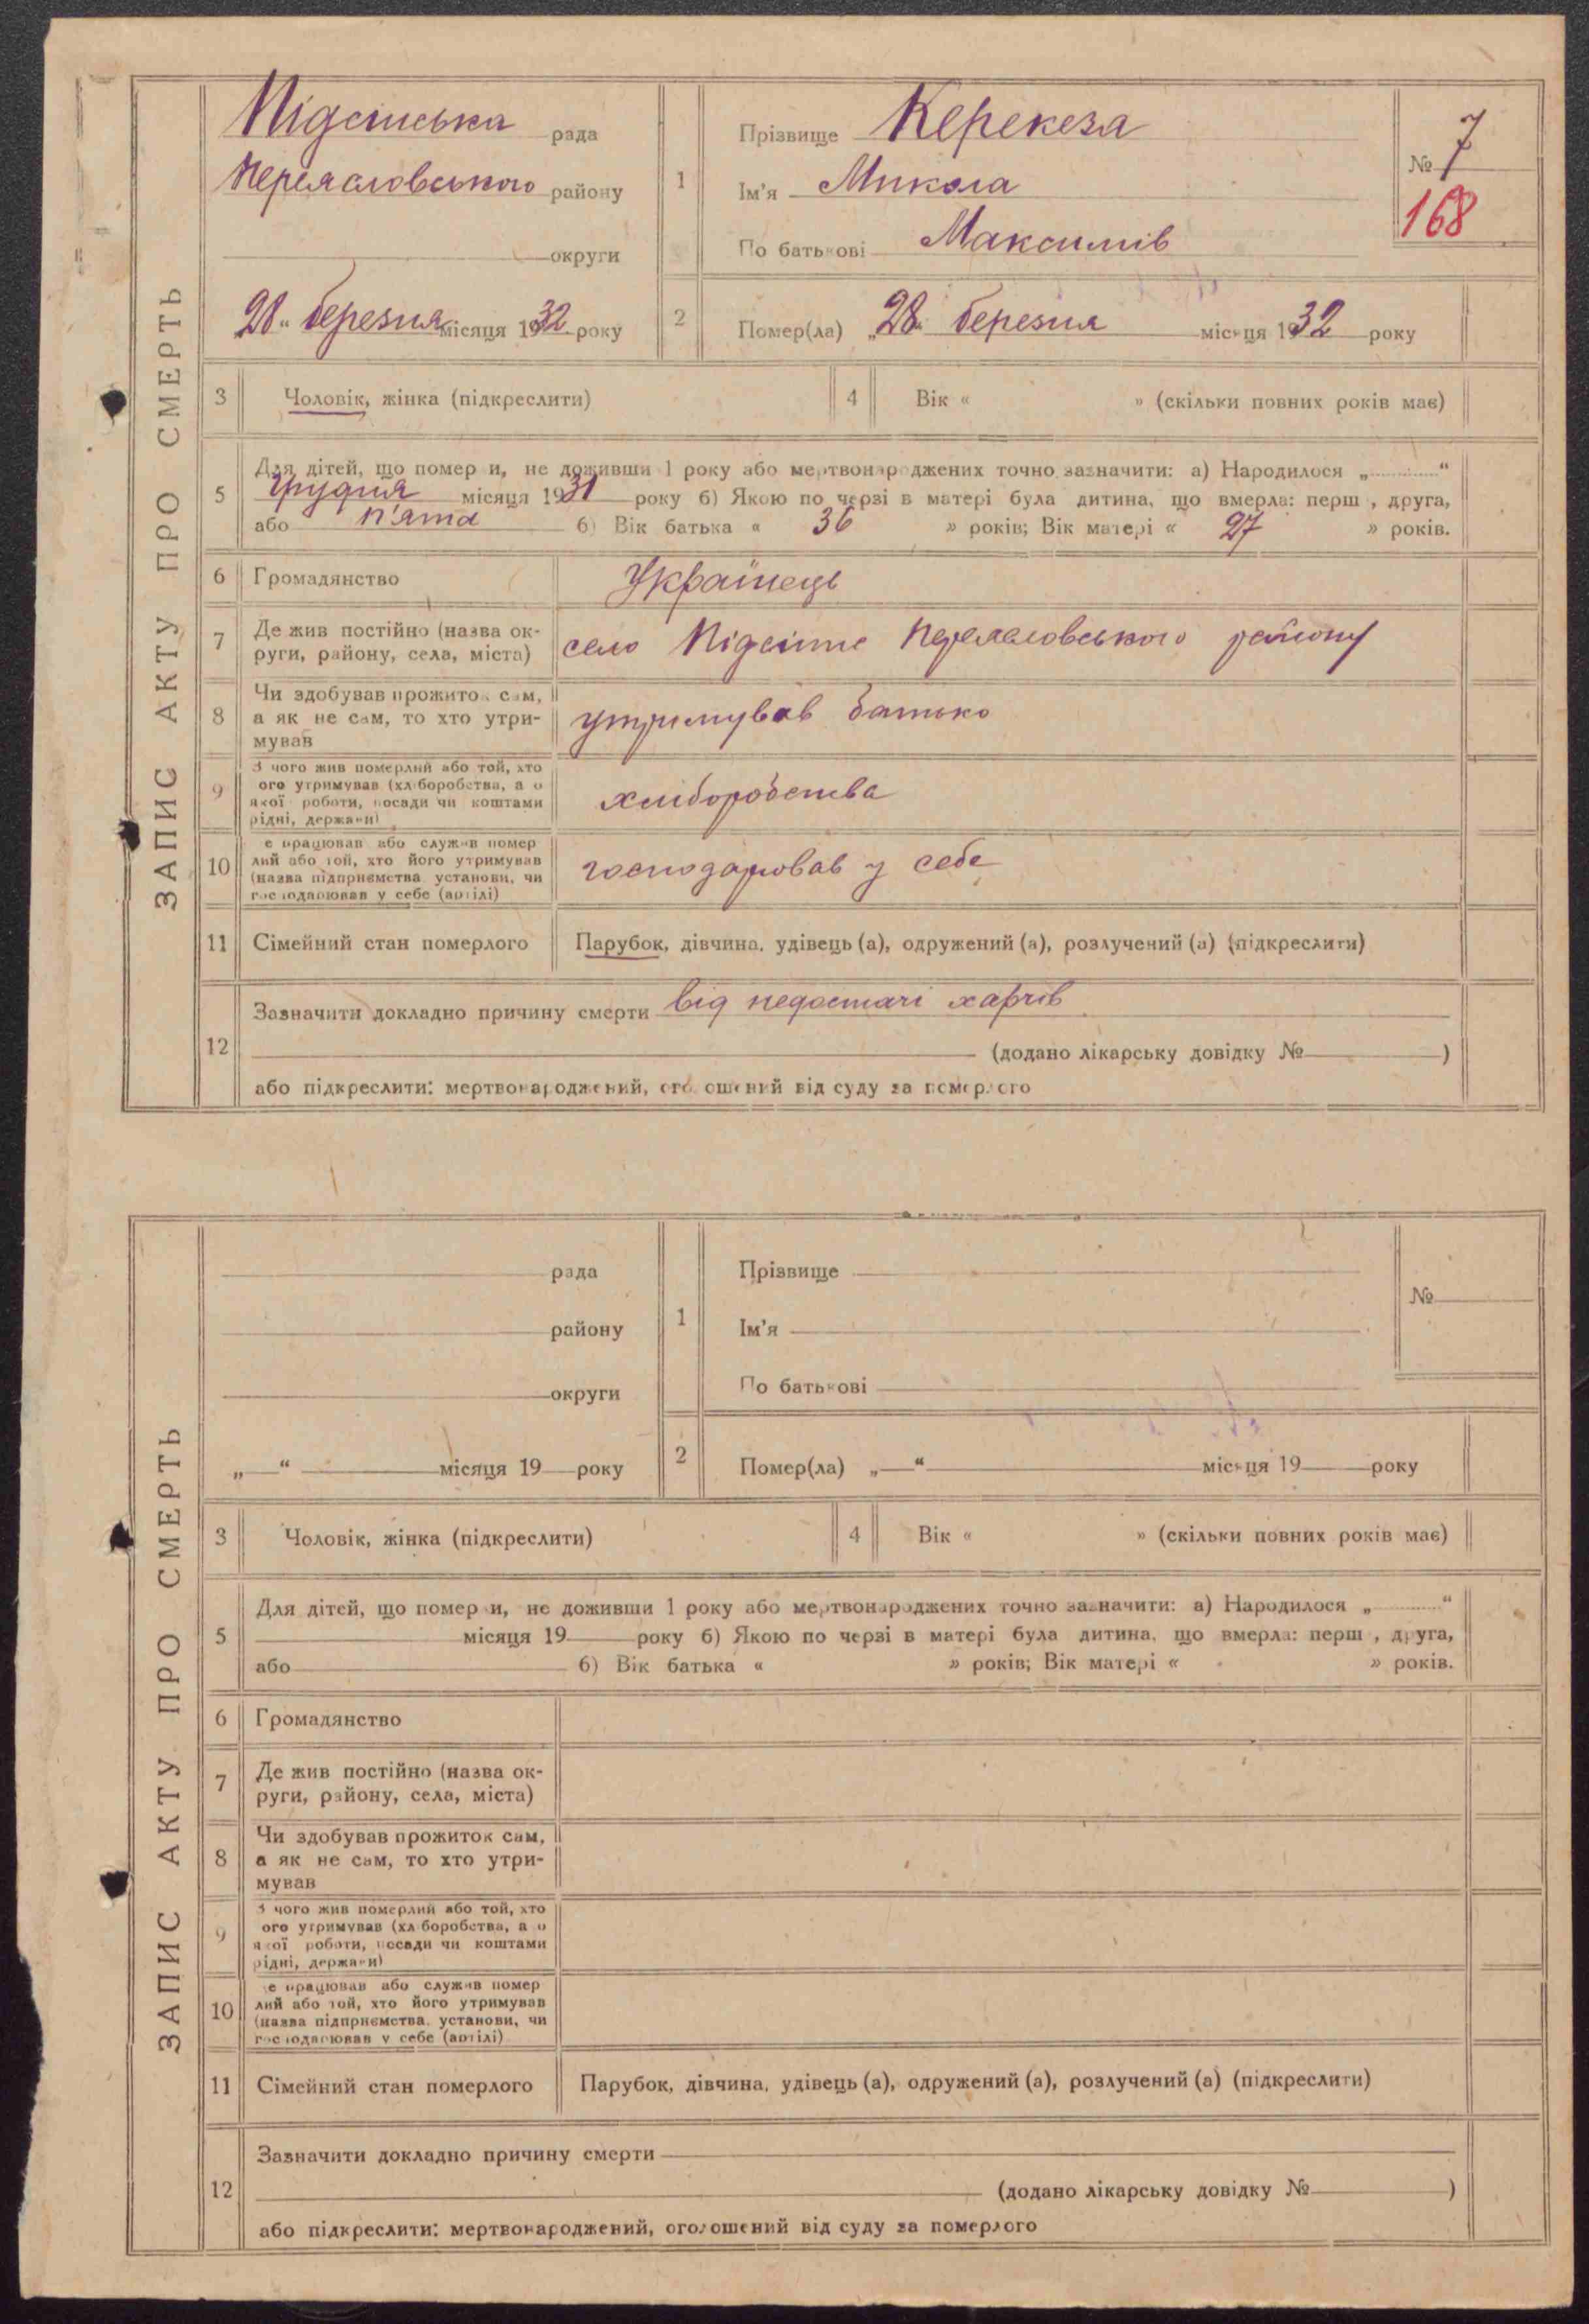 ЗАПИС АКТУ ПРО СМЕРТЬ
Підсінська рада
Переяславського району
округи
28 " березня місяця 1932 року
1
Прізвище Керекеза
Ім'я Микола
По батькові Максимів
№ 7
168
2
Помер(ла) „28" березня місяця 1932 року
3 Чоловік, жінка (підкреслити)
4 Вік « » (скільки повних років має)
5 Для дітей, що помер и, не доживши 1 року або мертвонароджених точно зазначити: а) Народилося „ "
грудня місяця 1931 року б) Якою по черзі в матері була дитина, що вмерла: перш , друга,
або п'ята б) Вік батька « 36 » років; Вік матері « 27 » років.
6 Громадянство Українець
7 Де жив постійно (назва ок-
руги, району, села, міста)
село Підсінне Переяславського району
8 Чи здобував прожиток сам,
а як не сам, то хто утри-
мував
утримував батько
9 З чого жив померлий або той, хто
ого утримував (хліборобства, а о
якої роботи, посади чи коштами
рідні, держави)
хліборобства
10 е працював або служив помер
лий або той, хто його утримував
(назва підприємства установи, чи
господарював у себе (артілі)
господарював у себе
11 Сімейний стан померлого Парубок, дівчина, удівець (а), одружений (а), розлучений (а) (підкреслити)
12 Зазначити докладно причину смерти від недостачі харчів
(додано лікарську довідку № )
або підкреслити: мертвонароджений, оголошений від суду за померлого
ЗАПИС АКТУ ПРО СМЕРТЬ
рада
району
округи
„ " місяця 19 року
1
Прізвище
Ім'я
По батькові
№
2
Помер(ла) „ " місяця 19 року
3 Чоловік, жінка (підкреслити)
4 Вік « » (скільки повних років має)
5 Для дітей, що помер и, не доживши 1 року або мертвонароджених точно зазначити: а) Народилося „ "
місяця 19 року б) Якою по черзі в матері була дитина, що вмерла: перш , друга,
або б) Вік батька « » років; Вік матері « » років.
6 Громадянство
7 Де жив постійно (назва ок-
руги, району, села, міста)
8 Чи здобував прожиток сам,
а як не сам, то хто утри-
мував
9 З чого жив померлий або той, хто
ого утримував (хліборобства, а о
якої роботи, посади чи коштами
рідні, держави)
10 е працював або служив помер
лий або той, хто його утримував
(назва підприємства, установи, чи
господарював у себе (артілі)
11 Сімейний стан померлого Парубок, дівчина, удівець (а), одружений (а), розлучений (а) (підкреслити)
12 Зазначити докладно причину смерти
(додано лікарську довідку № )
або підкреслити: мертвонароджений, оголошений від суду за померлого